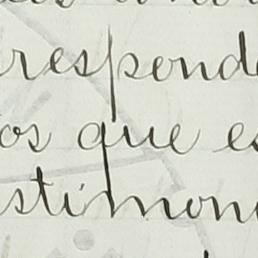 responde
os que es
stimon